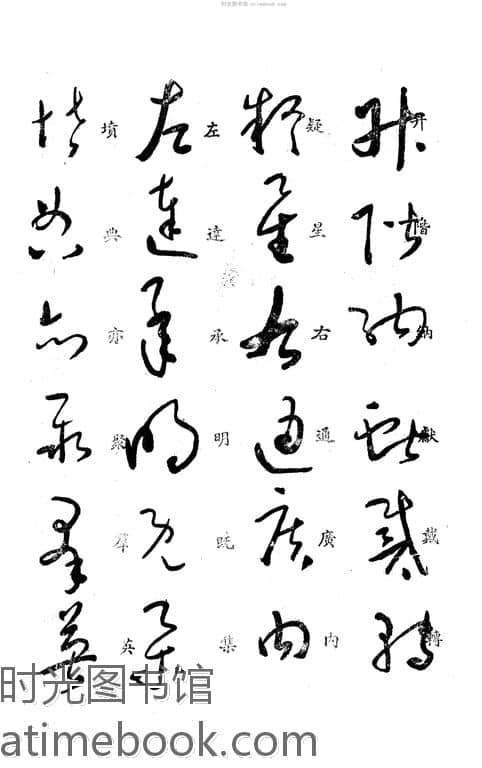 时光图书馆 atimebook.com
升階納獻戴轉
疑星右通廣內
左達承明既集
墳典亦聚羣英
时光图书馆
atimebook.com